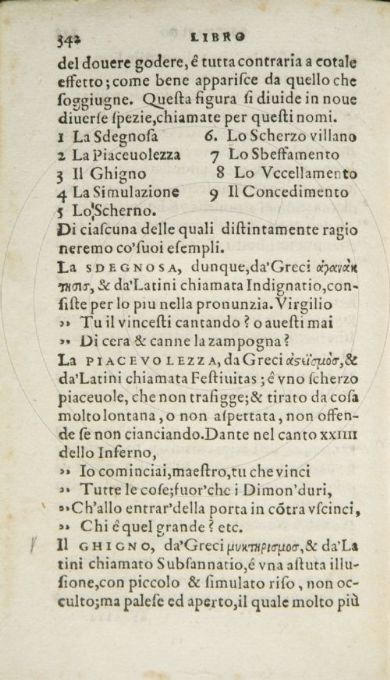 342 LIBRO
del douere godere, é tutta contraria a cotale
effetto; come bene apparisce da quello che
soggiugne. Queſta figura ſi diuide in noue
diuerſe ſpezie, chiamate per queſti nomi.
1 La Sdegnoſa 6. Lo Scherzo villano
2 La Piaceuolezza 7 Lo Sbeffamento
3 Il Ghigno 8 Lo Vccellamento
4 La Simulazione 9 Il Concedimento
5 Lo Scherno.
Di ciaſcuna delle quali diſtintamente ragio
neremo co'ſuoi eſempli.
La SDEGNOSA, dunque, da'Greci ἀγανάκ
τησισ, & da'Latini chiamata Indignatio, con-
ſiſte per lo piu nella pronunzia. Virgilio
›› Tu il vinceſti cantando? o aueſti mai
›› Di cera & canne la zampogna?
La PIACEVOLEZZA, da Greci ἀςεϊσμὸσ, &
da'Latini chiamata Feſtiuitas; é vno ſcherzo
piaceuole, che non trafigge; & tirato da coſa
molto lontana, o non aſpettata, non offen-
de ſe non cianciando. Dante nel canto xxiiii
dello Inferno,
›› Io cominciai, maeſtro, tu che vinci
›› Tutte le coſe; fuor'che i Dimon'duri,
›› Ch'allo entrar'della porta in cõtra vſcinci,
›› Chi é quel grande? etc.
Il GHIGNO, da'Greci μυκτηρισμοσ, & da'La
tini chiamato Subſannatio, é vna aſtuta illu-
ſione, con piccolo & ſimulato riſo, non oc-
culto; ma paleſe ed aperto, il quale molto più